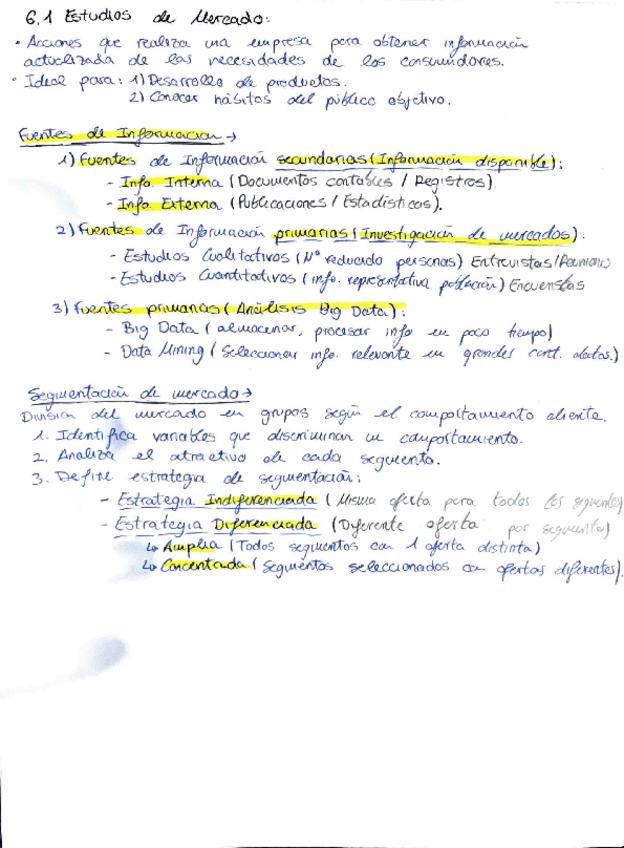 6.1 Estudios de Mercado:
• Acciones que realiza una empresa para obtener información
actualizada de las necesidades de los consumidores.
• Ideal para: 1) Desarrollo de productos.
2) Conocer hábitos del público objetivo.
Fuentes de Información →
1) Fuentes de Información secundarias (Información disponible):
- Info. Interna (Documentos contables / Registros)
- Info. Externa (Publicaciones / Estadísticas).
2) Fuentes de Información primarias (Investigación de mercados):
- Estudios Cualitativos (Nº reducido personas) Entrevistas/Reuniones
- Estudios Cuantitativos (info. representativa población) Encuestas
3) Fuentes primarias (Análisis Big Data):
- Big Data (almacenar, procesar info en poco tiempo)
- Data Mining (Seleccionar info. relevante en grandes cant. datos.)
Segmentación de mercado →
División del mercado en grupos según el comportamiento cliente.
1. Identifica variables que discriminan un comportamiento.
2. Analiza el atractivo de cada segmento.
3. Define estrategia de segmentación:
- Estrategia Indiferenciada (Misma oferta para todos los segmentos)
- Estrategia Diferenciada (Diferente oferta por segmento)
↳ Amplia (Todos segmentos con 1 oferta distinta)
↳ Concentrada (Segmentos seleccionados con ofertas diferentes).